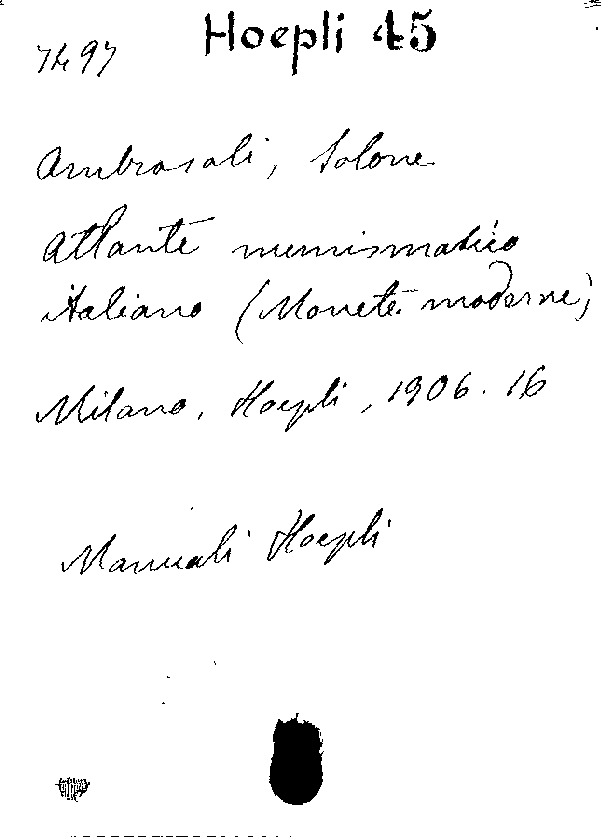 Hoepli 45
7497
Ambrosoli, Solone
Atlante numismatico
italiano (Monete moderne)
Milano, Hoepli, 1906. 16
Manuali Hoepli